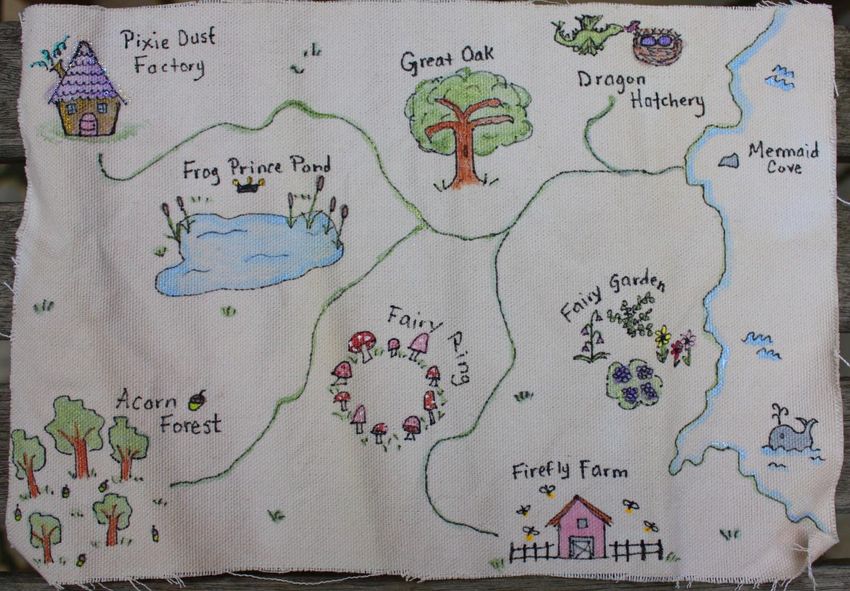 Pixie Dust
Factory
Great Oak
Dragon
Hatchery
Mermaid
Cove
Frog Prince Pond
Fairy Garden
Fairy Ring
Acorn
Forest
Firefly Farm